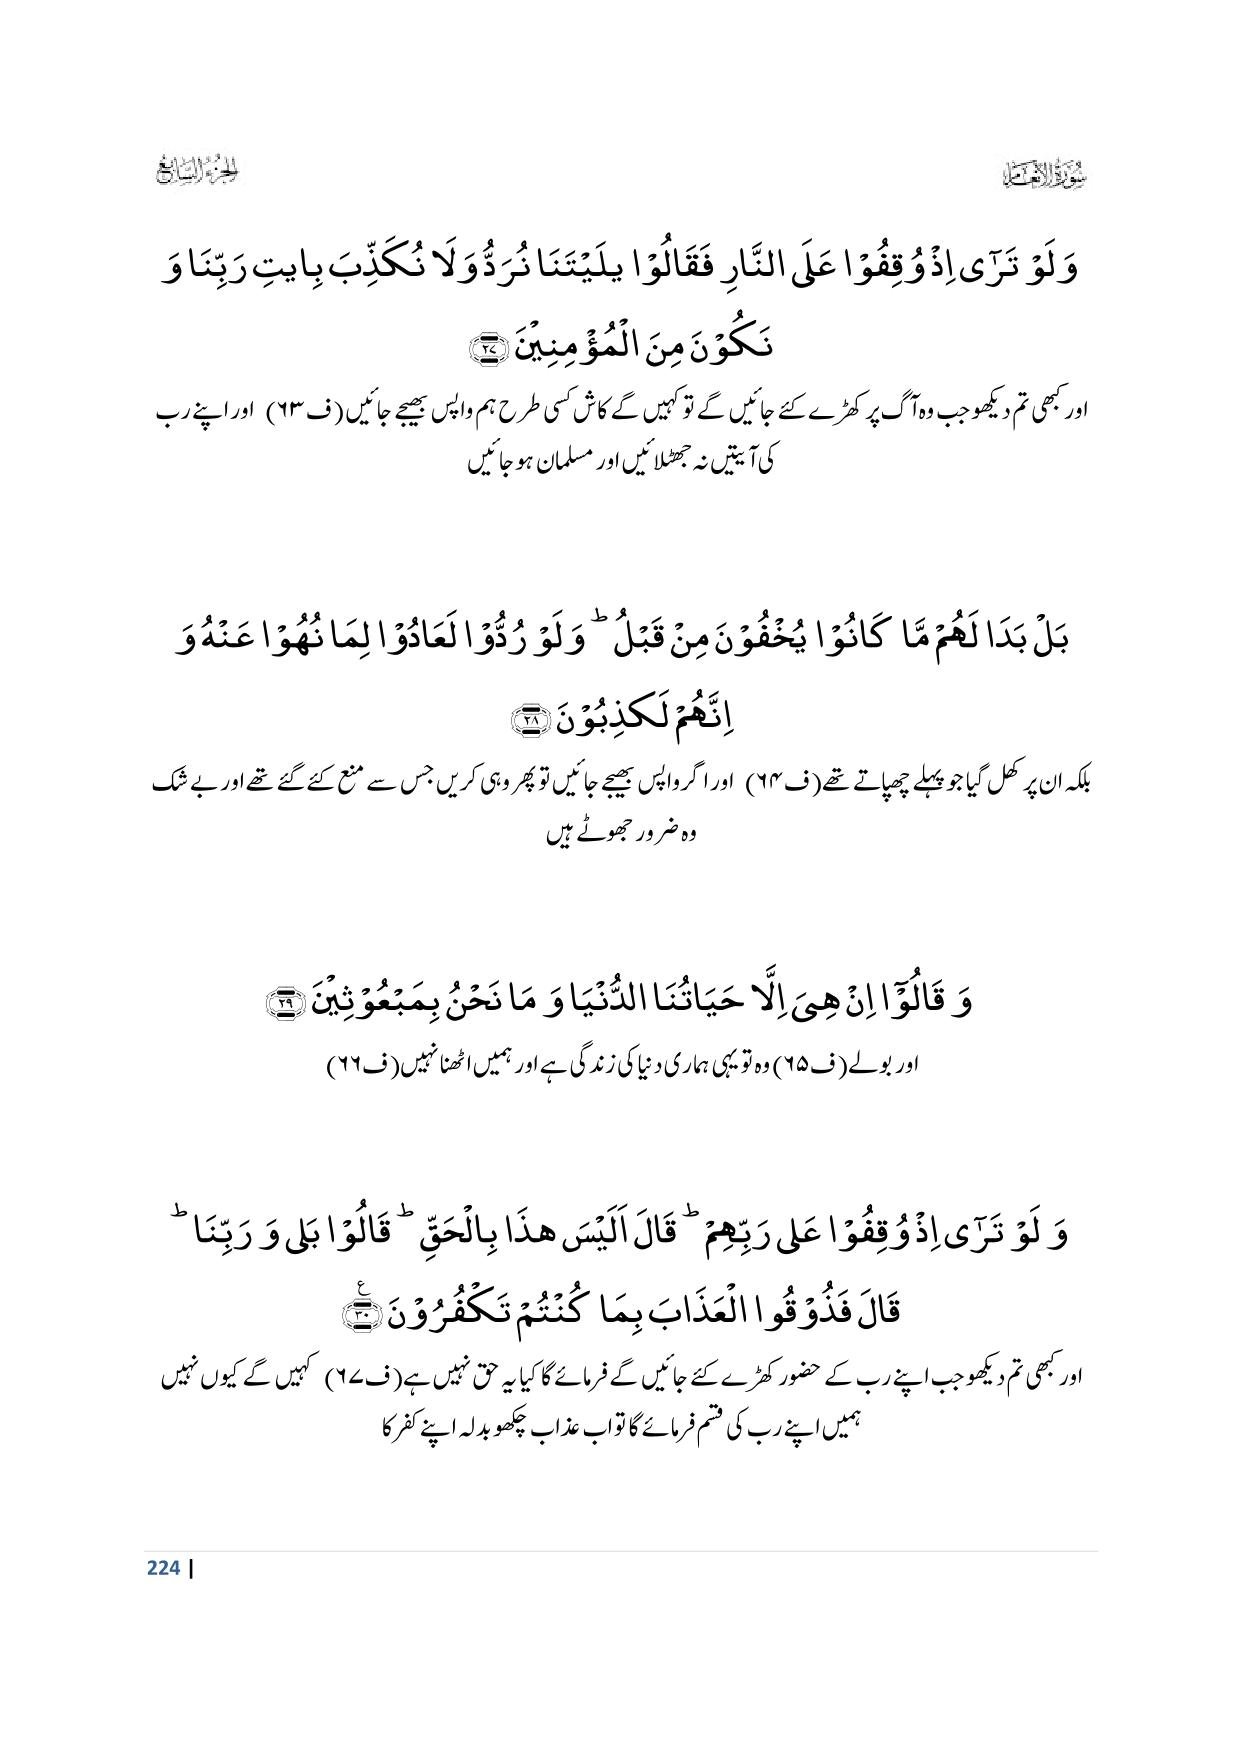 سُوْرَۃُ الْاَنْعَام
اَلْجُزْءُ السَّابِعُ
وَ لَوْ تَرٰۤی اِذْ وُقِفُوْا عَلَی النَّارِ فَقَالُوْا یلَیْتَنَا نُرَدُّ وَلَا نُکَذِّبَ بِایتِ رَبِّنَا وَ
نَکُوْنَ مِنَ الْمُؤْمِنِیْنَ ﴿۲۷﴾
اور کبھی تم دیکھو جب وہ آگ پر کھڑے کئے جائیں گے تو کہیں گے کاش کسی طرح ہم واپس بھیجے جائیں (ف۶۳) اور اپنے رب
کی آیتیں نہ جھٹلائیں اور مسلمان ہو جائیں
بَلْ بَدَا لَهُمْ مَّا کَانُوْا یُخْفُوْنَ مِنْ قَبْلُ ؕ وَ لَوْ رُدُّوْا لَعَادُوْا لِمَا نُهُوْا عَنْهُ وَ
اِنَّهُمْ لَکذِبُوْنَ ﴿۲۸﴾
بلکہ ان پر کھل گیا جو پہلے چھپاتے تھے (ف۶۴) اور اگر واپس بھیجے جائیں تو پھر وہی کریں جس سے منع کئے گئے تھے اور بے شک
وہ ضرور جھوٹے ہیں
وَ قَالُوْۤا اِنْ هِیَ اِلَّا حَیَاتُنَا الدُّنْیَا وَ مَا نَحْنُ بِمَبْعُوْثِیْنَ ﴿۲۹﴾
اور بولے (ف۶۵) وہ تو یہی ہماری دنیا کی زندگی ہے اور ہمیں اٹھنا نہیں (ف۶۶)
وَ لَوْ تَرٰۤی اِذْ وُقِفُوْا عَلی رَبِّهِمْ ؕ قَالَ اَلَیْسَ هذَا بِالْحَقِّ ؕ قَالُوْا بَلی وَ رَبِّنَا ؕ
قَالَ فَذُوْقُوا الْعَذَابَ بِمَا کُنْتُمْ تَکْفُرُوْنَ ﴿۳۰﴾ ع
اور کبھی تم دیکھو جب اپنے رب کے حضور کھڑے کئے جائیں گے فرمائے گا کیا یہ حق نہیں ہے (ف۶۷) کہیں گے کیوں نہیں
ہمیں اپنے رب کی قسم فرمائے گا تو اب عذاب چکھو بدلہ اپنے کفر کا
224 |